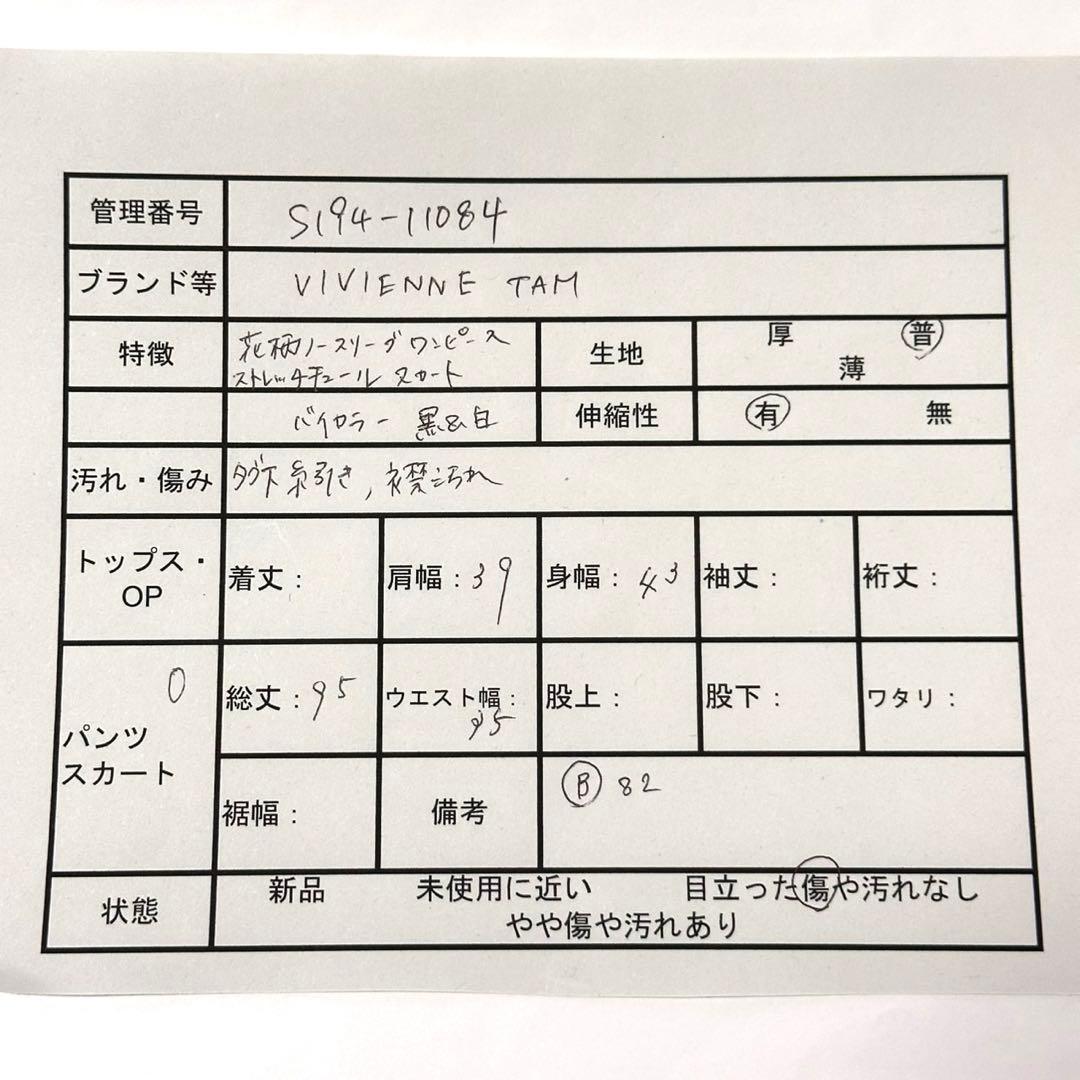 管理番号 S194-11084
ブランド等 VIVIENNE TAM
特徴 花柄ノースリーブワンピース 生地 厚 普
ストレッチチュール スカート 薄
バイカラー 黒&白 伸縮性 有 無
汚れ・傷み タグ下 糸引き, 襟汚れ
トップス・OP 着丈: 肩幅:39 身幅:43 袖丈: 裄丈:
0
パンツ
スカート
総丈:95 ウエスト幅: 股上: 股下: ワタリ:
裾幅: 備考 B 82
状態 新品 未使用に近い 目立った傷や汚れなし
やや傷や汚れあり